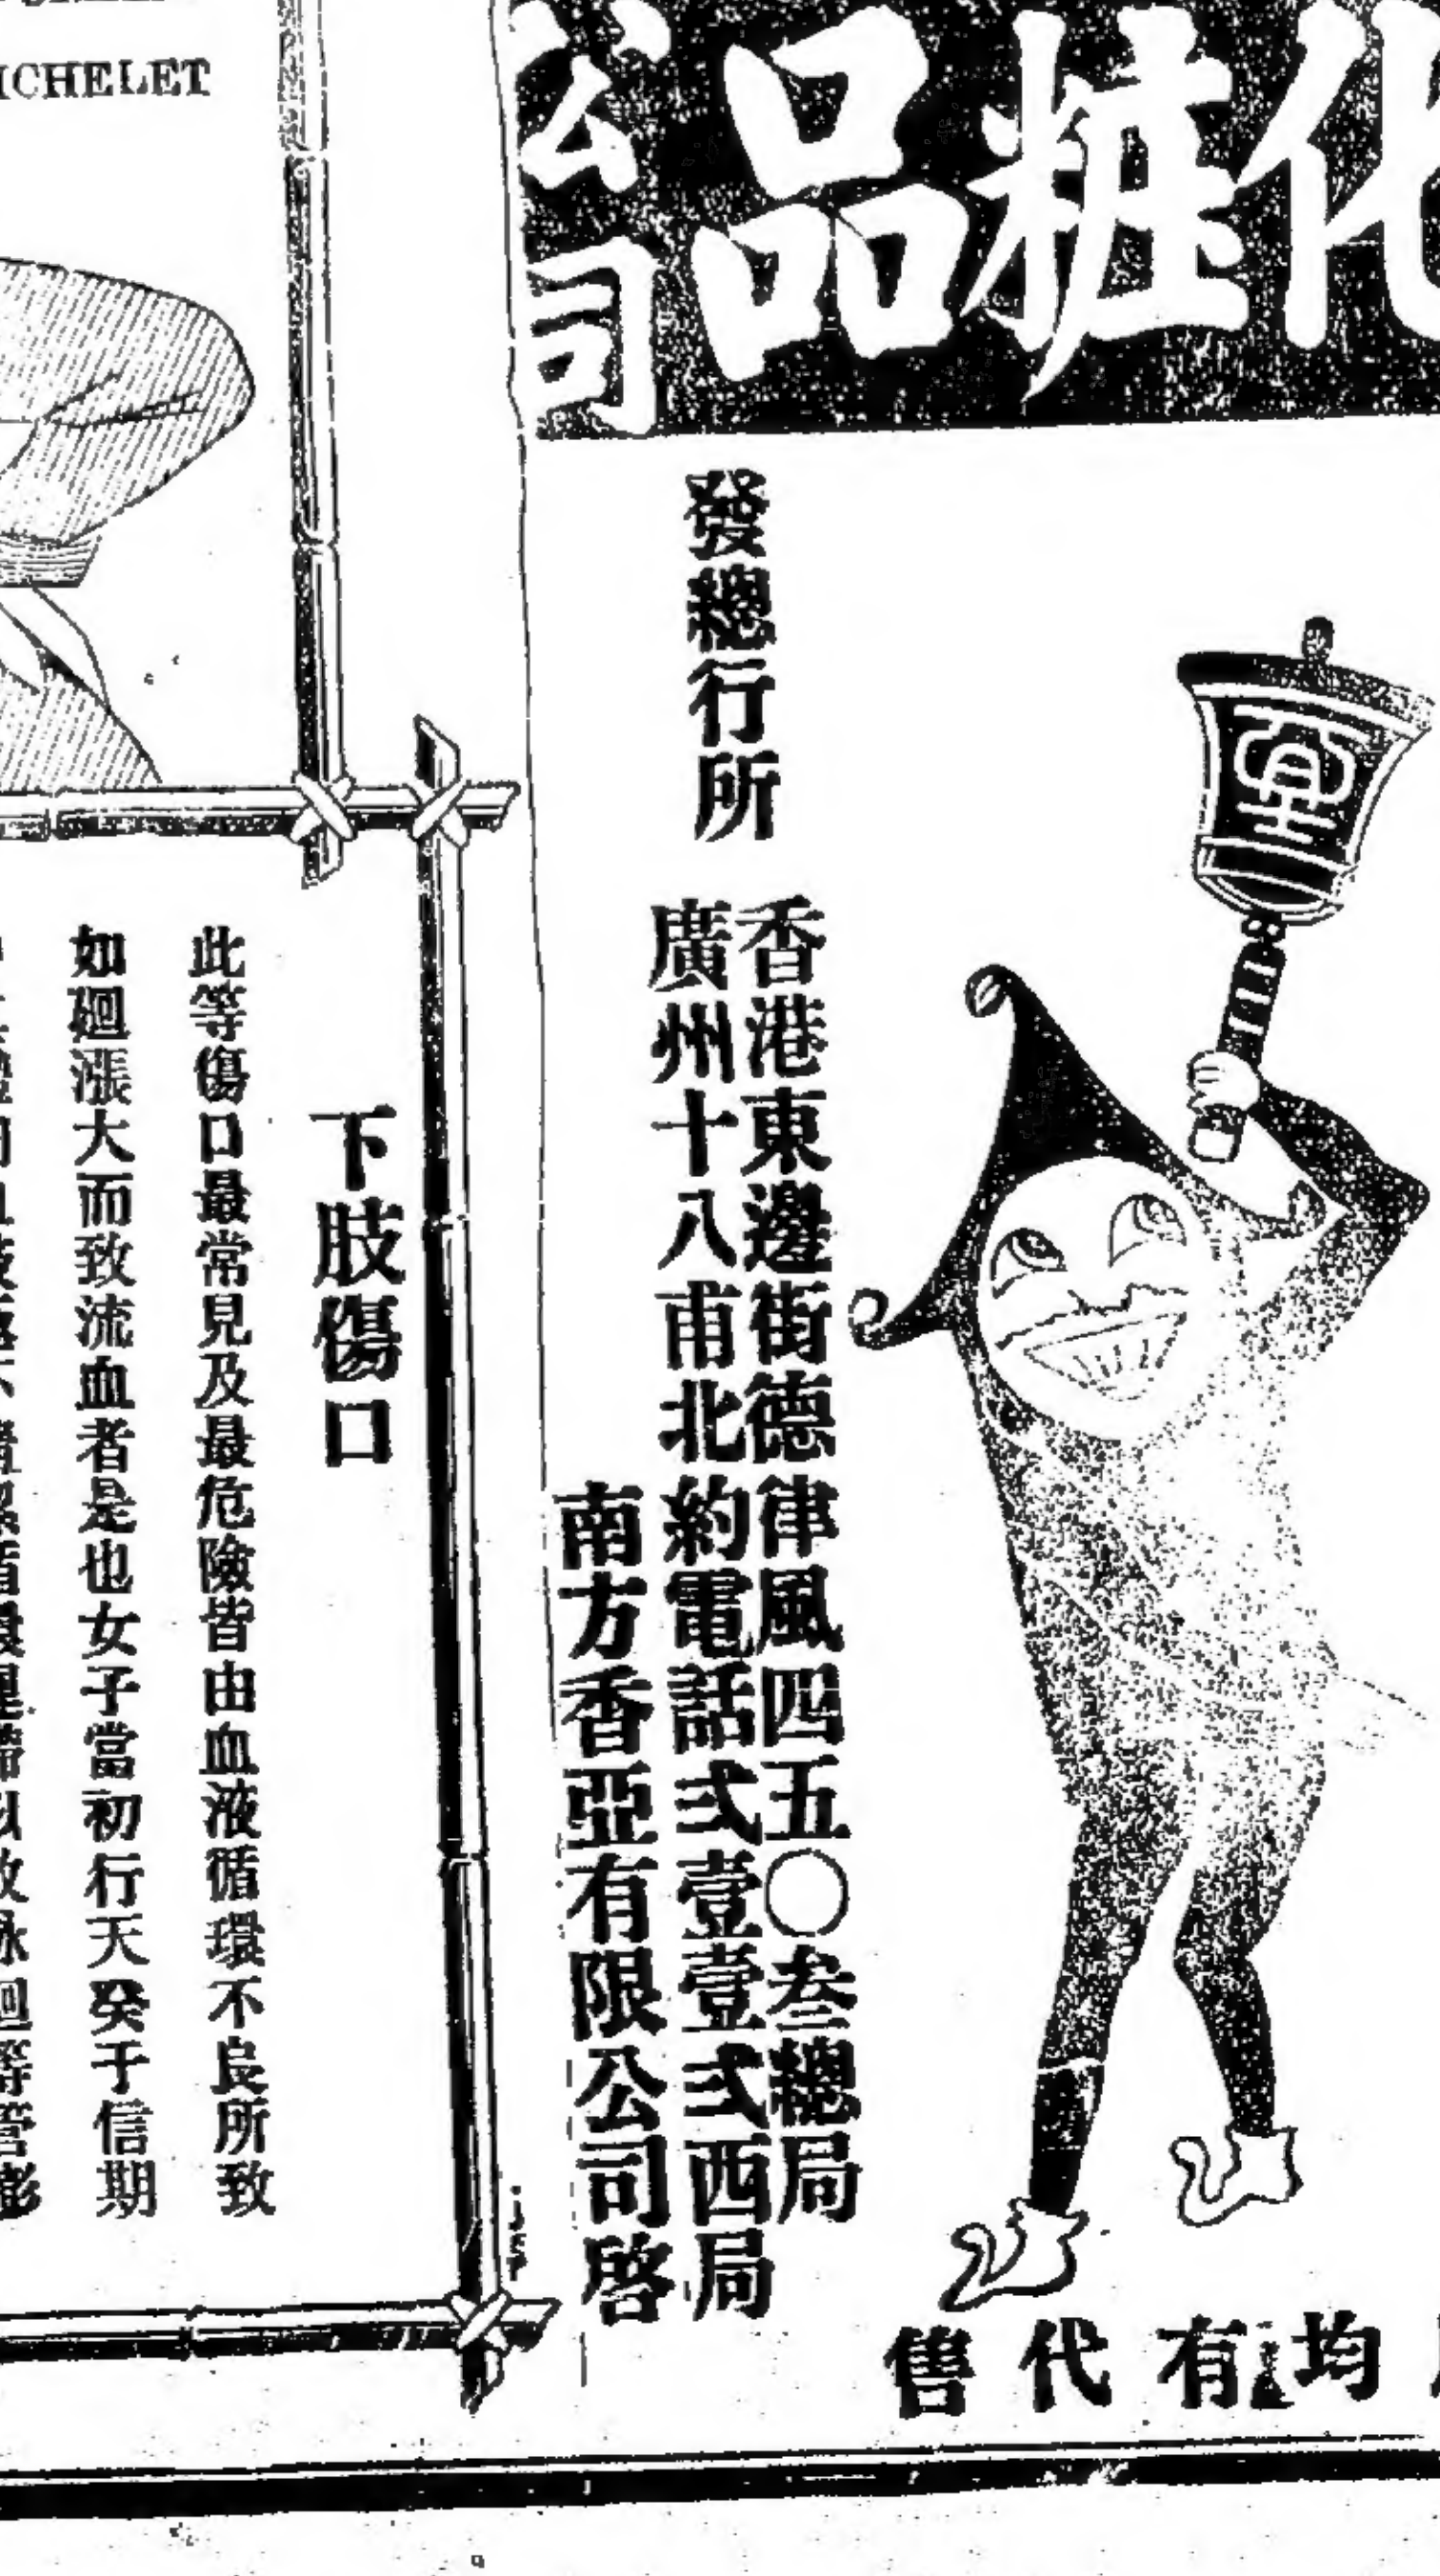 化粧品公司
發總行所
香港東邊街德律風四五〇叁總局
廣州十八甫北約電話弍壹壹弍西局
南方香亞有限公司啓
均有代售
ICHELET
下肢傷口
此等傷口最常見及最危險皆由血液循環不良所致
如廻漲大而致流血者是也女子當初行天癸于信期